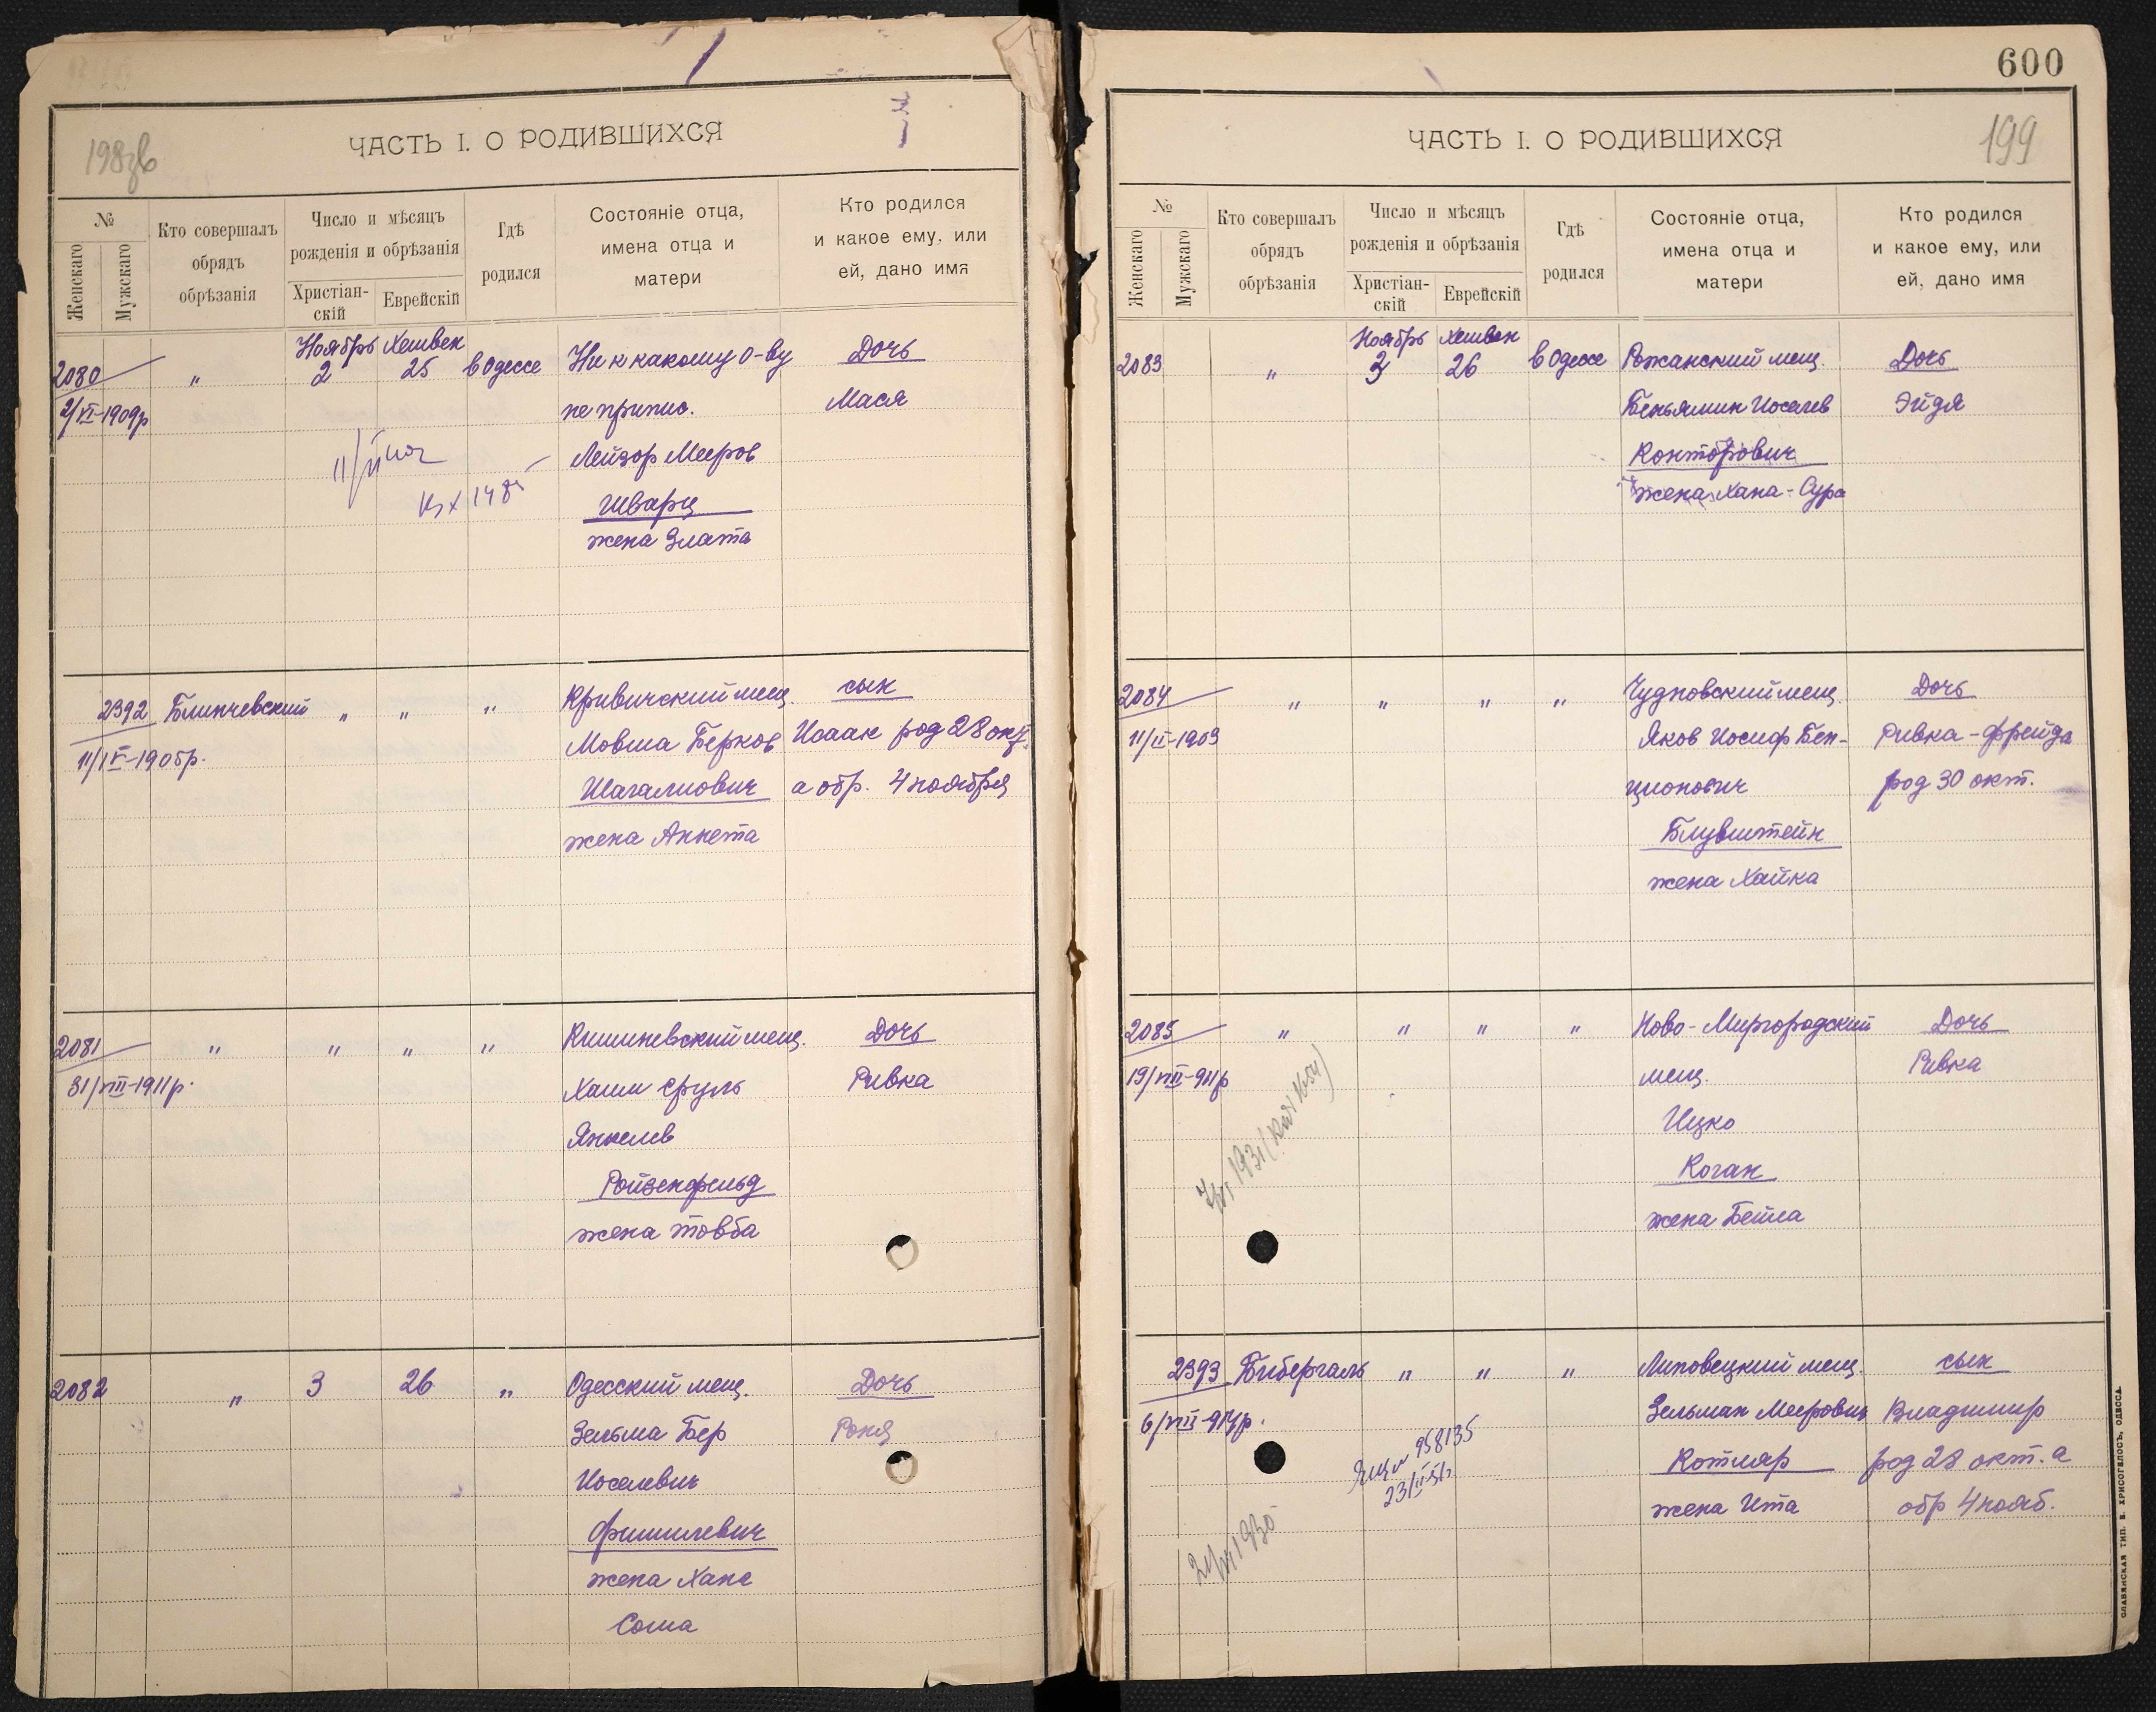 198
ЧАСТЬ I. О РОДИВШИХСЯ
№
Женскаго
Мужскаго
Кто совершалъ
обрядъ
обрѣзанія
Число и мѣсяцъ
рожденія и обрѣзанія
Христіан-
скій
Еврейскій
Гдѣ
родился
Состояніе отца,
имена отца и
матери
Кто родился
и какое ему, или
ей, дано имя
Ноябрь Хешвен
2080 " 2 25 в Одессе Ни к какому о-ву Дочь
2/VI-1909р не припис. Мася
Лейзор Мееров
Шварц
жена Злата
2392 Блинчевский " " " Кривичский мещ. сын
11/IV-1905р. Мовша Берков Исаак род 28 окт.
Шагалиович а обр. 4 ноября
жена Аннета
2081 " " " " Кишиневский мещ. Дочь
31/VIII-1911р. Хаим Сруль Ривка
Янкелев
Ройзенфельд
жена Товба
2082 " 3 26 " Одесский мещ. Дочь
Зельма Бер Роня
Иоселевич
Фишилевич
жена Хана
Соша
600
199
ЧАСТЬ I. О РОДИВШИХСЯ
№
Женскаго
Мужскаго
Кто совершалъ
обрядъ
обрѣзанія
Число и мѣсяцъ
рожденія и обрѣзанія
Христіан-
скій
Еврейскій
Гдѣ
родился
Состояніе отца,
имена отца и
матери
Кто родился
и какое ему, или
ей, дано имя
Ноябрь Хешвен
2083 " 3 26 в Одессе Рожанский мещ. Дочь
Беньямин Иоселев Эйдя
Конторович
жена Хана-Сура
2084 " " " " Чудновский мещ. Дочь
11/II-1909 Яков Иосиф Бен- Ривка-Фрейда
ционович род 30 окт.
Блувштейн
жена Хайка
2085 " " " " Ново-Миргородский Дочь
19/VIII-911р мещ. Ривка
Ицко
Коган
жена Бейла
2393 Бибергаль " " " Липовецкий мещ. сын
6/VIII-914р. Зельман Меерович Владимир
958135
23/II-51г.
Котляр род 28 окт. а
жена Ита обр 4 нояб.
СЛАВЯНСКАЯ ТИП. В. ХРИСОГЕЛОСЪ, ОДЕССА.